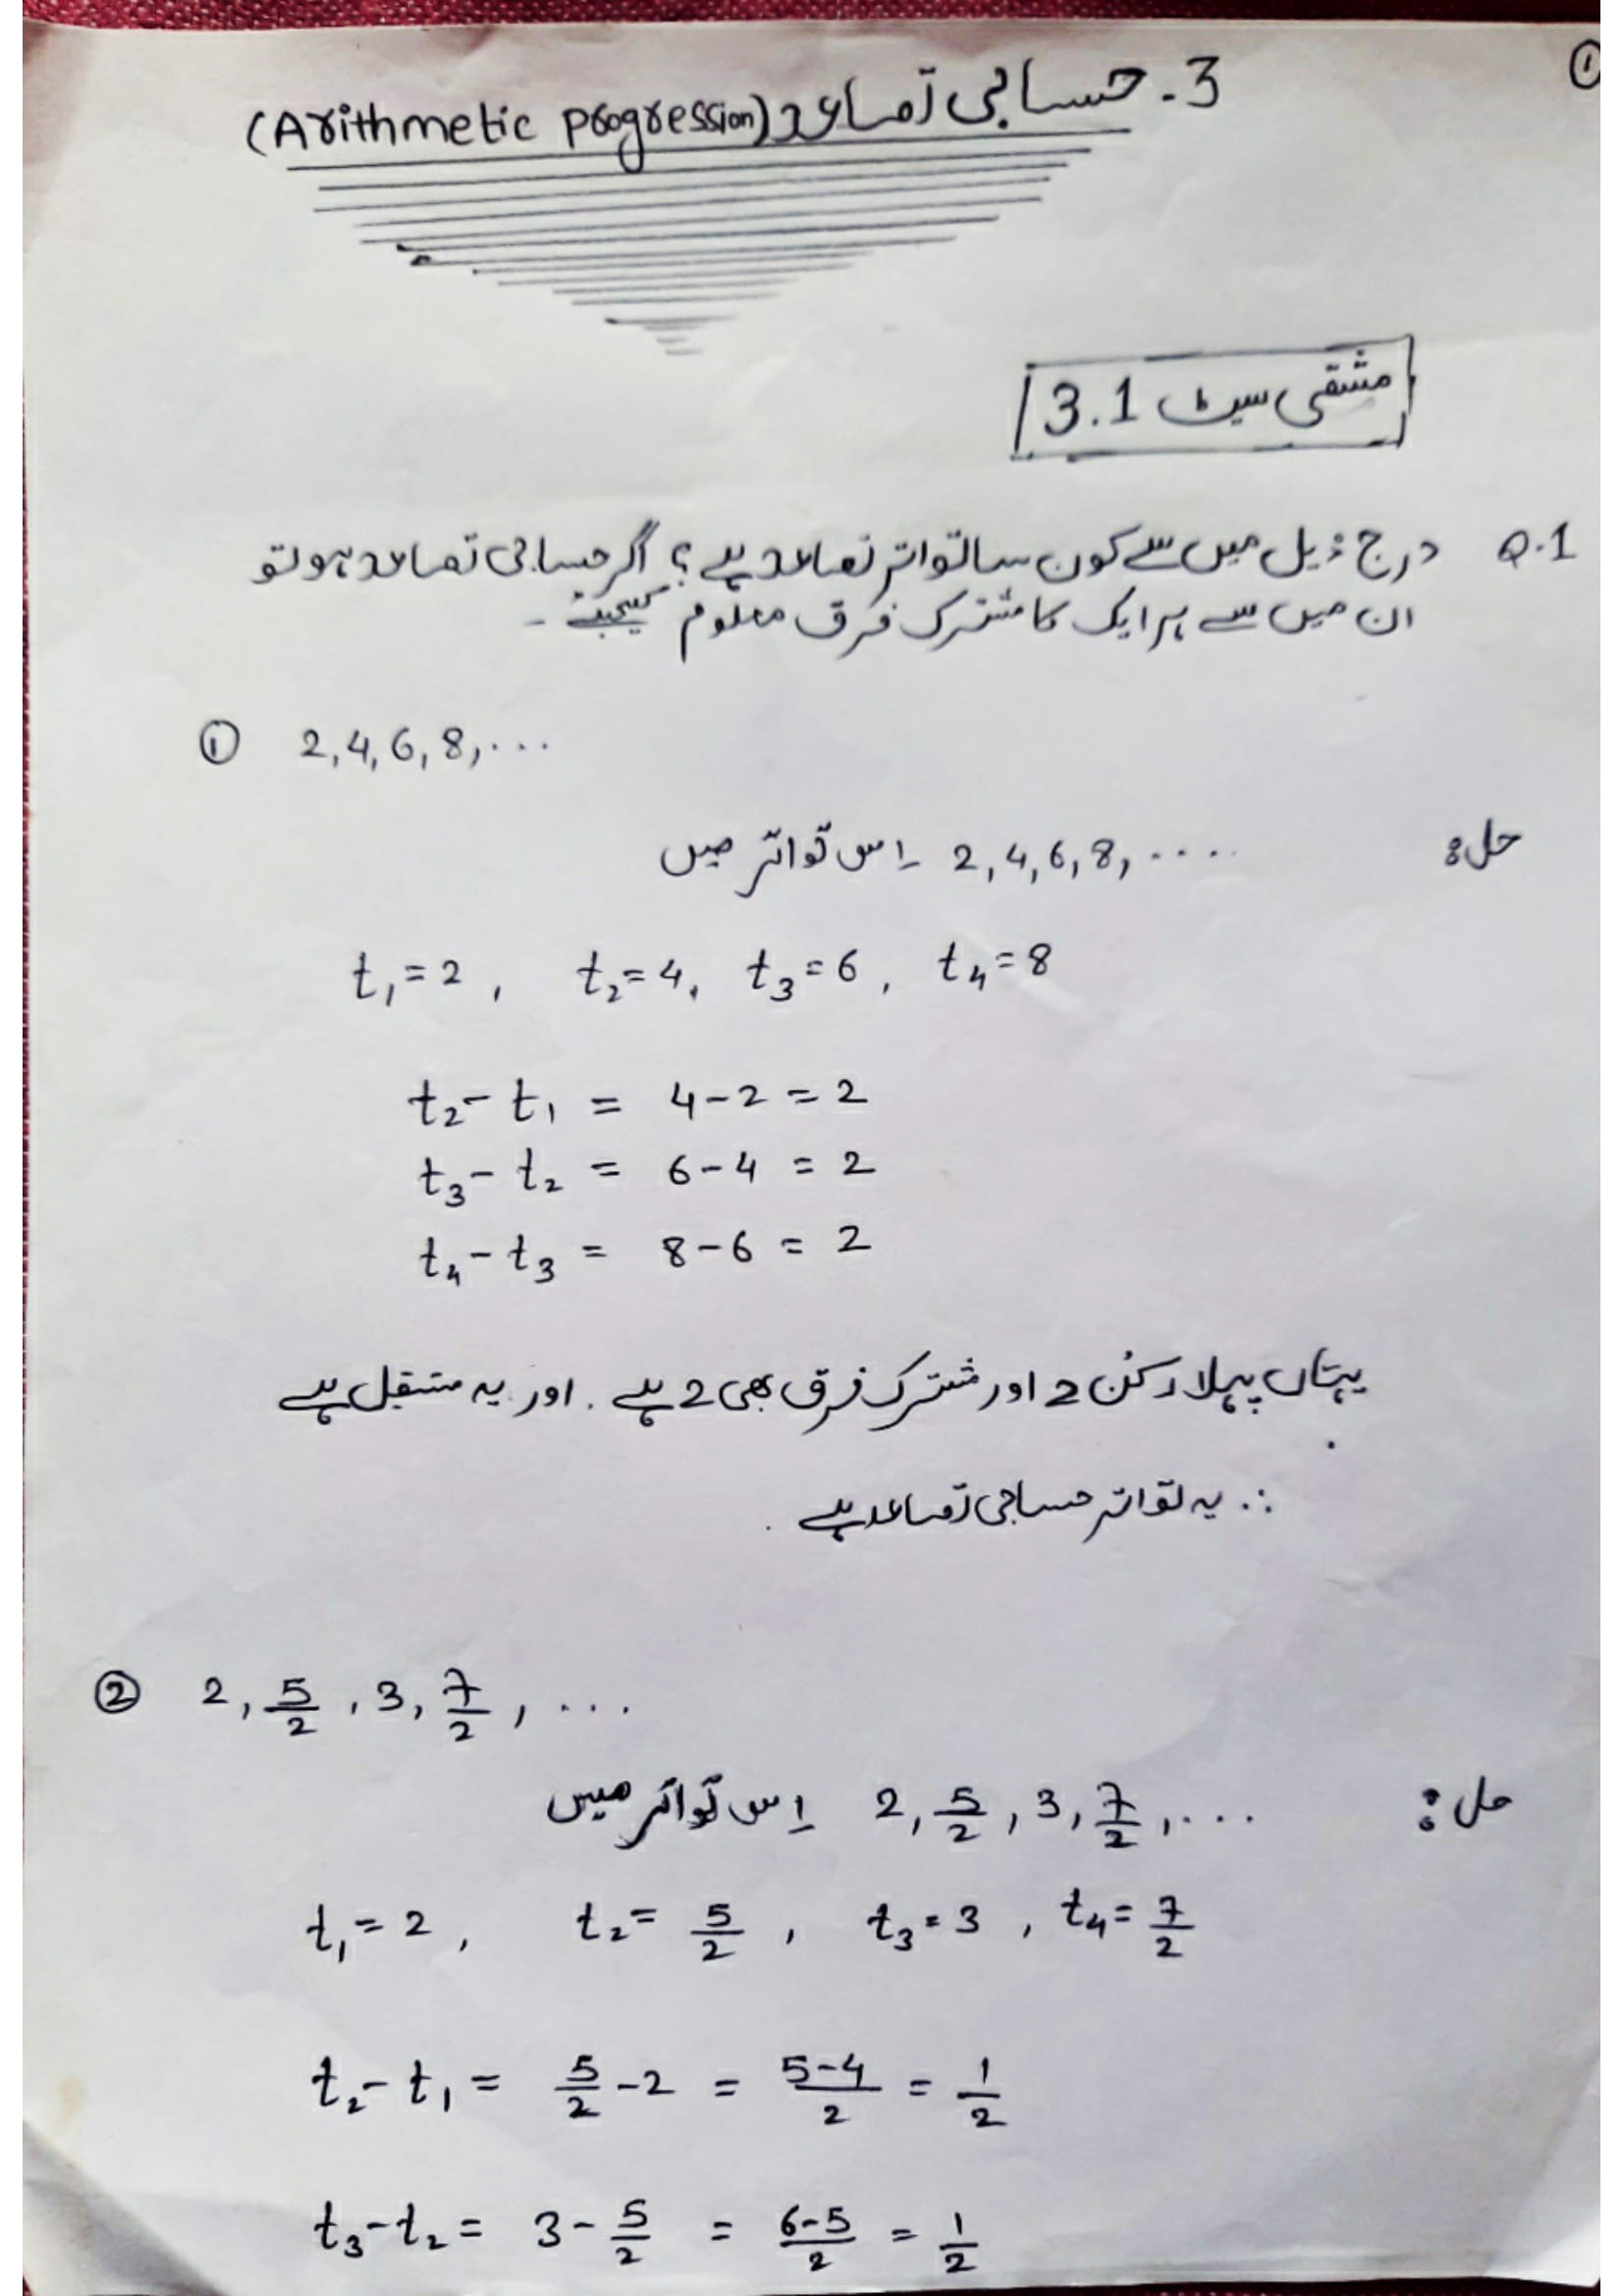 ①
3. حسابی تصاعد (Arithmetic progression)
مشقی سیٹ 3.1
Q.1 درج ذیل میں سے کون سا تواتر تصاعد ہے؟ اگر حسابی تصاعد ہو تو
ان میں سے ہر ایک کا مشترک فرق معلوم کیجیے۔
① 2, 4, 6, 8, ...
حل: 2, 4, 6, 8, .... اِس تواتر میں
t₁ = 2, t₂ = 4, t₃ = 6, t₄ = 8
t₂ - t₁ = 4 - 2 = 2
t₃ - t₂ = 6 - 4 = 2
t₄ - t₃ = 8 - 6 = 2
یہاں پہلا رکن 2 اور مشترک فرق بھی 2 ہے. اور یہ مستقل ہے
∴ یہ تواتر حسابی تصاعد ہے.
② 2, 5/2, 3, 7/2, ...
حل: 2, 5/2, 3, 7/2, ... اِس تواتر میں
t₁ = 2, t₂ = 5/2, t₃ = 3, t₄ = 7/2
t₂ - t₁ = 5/2 - 2 = (5-4)/2 = 1/2
t₃ - t₂ = 3 - 5/2 = (6-5)/2 = 1/2